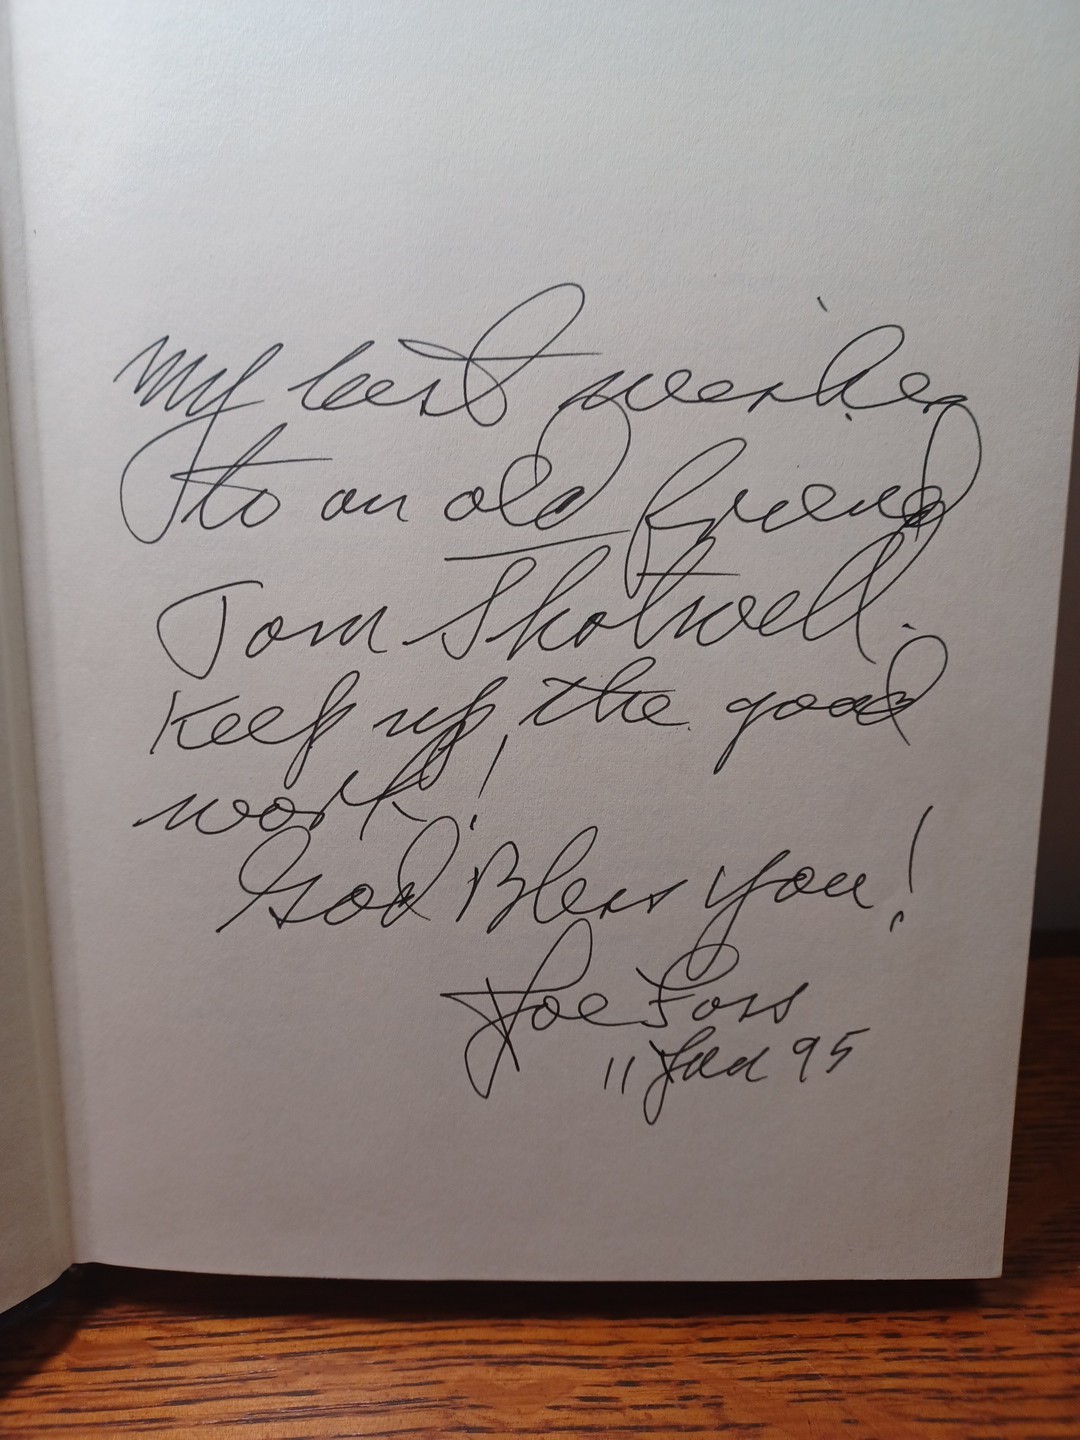 My best wishes
to an old friend
Tom Shotwell.
Keep up the good
work!
God Bless you!
Joe Foss
11 Jan 95